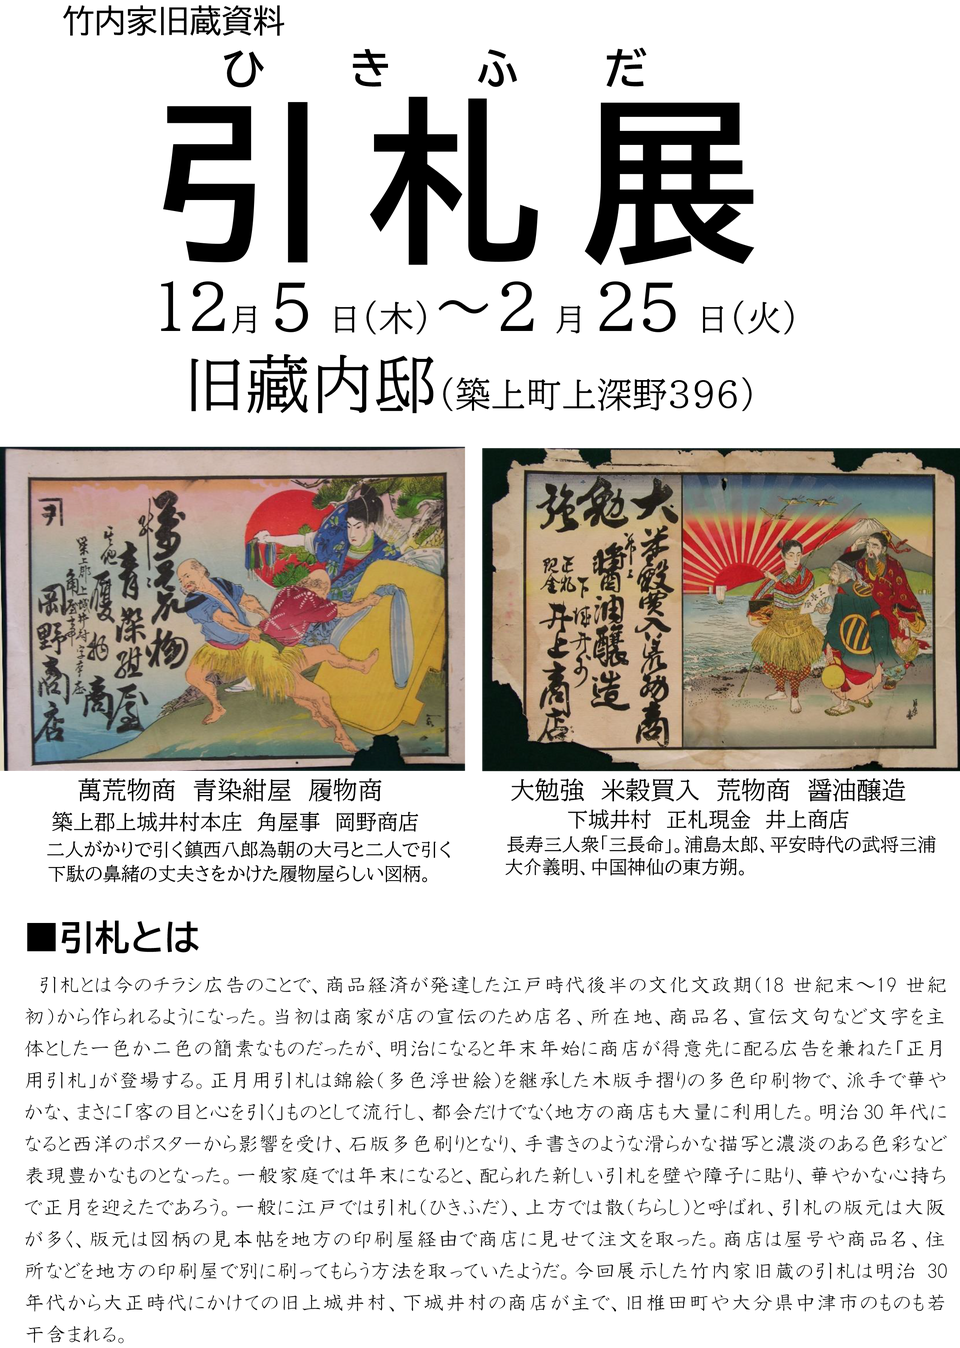 竹内家旧蔵資料
ひきふだ
引札展
12月5日(木)～2月25日(火)
旧藏内邸(築上町上深野396)
大勉強
米穀買入荒物商
醤油醸造
正札
現金
下城井村
井上商店
萬荒物
青染紺屋
履物商
岡野商店
萬荒物商 青染紺屋 履物商
築上郡上城井村本庄 角屋事 岡野商店
二人がかりで引く鎮西八郎為朝の大弓と二人で引く
下駄の鼻緒の丈夫さをかけた履物屋らしい図柄。
大勉強 米穀買入 荒物商 醤油醸造
下城井村 正札現金 井上商店
長寿三人衆「三長命」。浦島太郎、平安時代の武将三浦
大介義明、中国神仙の東方朔。
■引札とは
引札とは今のチラシ広告のことで、商品経済が発達した江戸時代後半の文化文政期(18 世紀末～19 世紀
初)から作られるようになった。当初は商家が店の宣伝のため店名、所在地、商品名、宣伝文句など文字を主
体とした一色か二色の簡素なものだったが、明治になると年末年始に商店が得意先に配る広告を兼ねた「正月
用引札」が登場する。正月用引札は錦絵(多色浮世絵)を継承した木版手摺りの多色印刷物で、派手で華や
かな、まさに「客の目と心を引く」ものとして流行し、都会だけでなく地方の商店も大量に利用した。明治30年代に
なると西洋のポスターから影響を受け、石版多色刷りとなり、手書きのような滑らかな描写と濃淡のある色彩など
表現豊かなものとなった。一般家庭では年末になると、配られた新しい引札を壁や障子に貼り、華やかな心持ち
で正月を迎えたであろう。一般に江戸では引札(ひきふだ)、上方では散(ちらし)と呼ばれ、引札の版元は大阪
が多く、版元は図柄の見本帖を地方の印刷屋経由で商店に見せて注文を取った。商店は屋号や商品名、住
所などを地方の印刷屋で別に刷ってもらう方法を取っていたようだ。今回展示した竹内家旧蔵の引札は明治 30
年代から大正時代にかけての旧上城井村、下城井村の商店が主で、旧椎田町や大分県中津市のものも若
干含まれる。